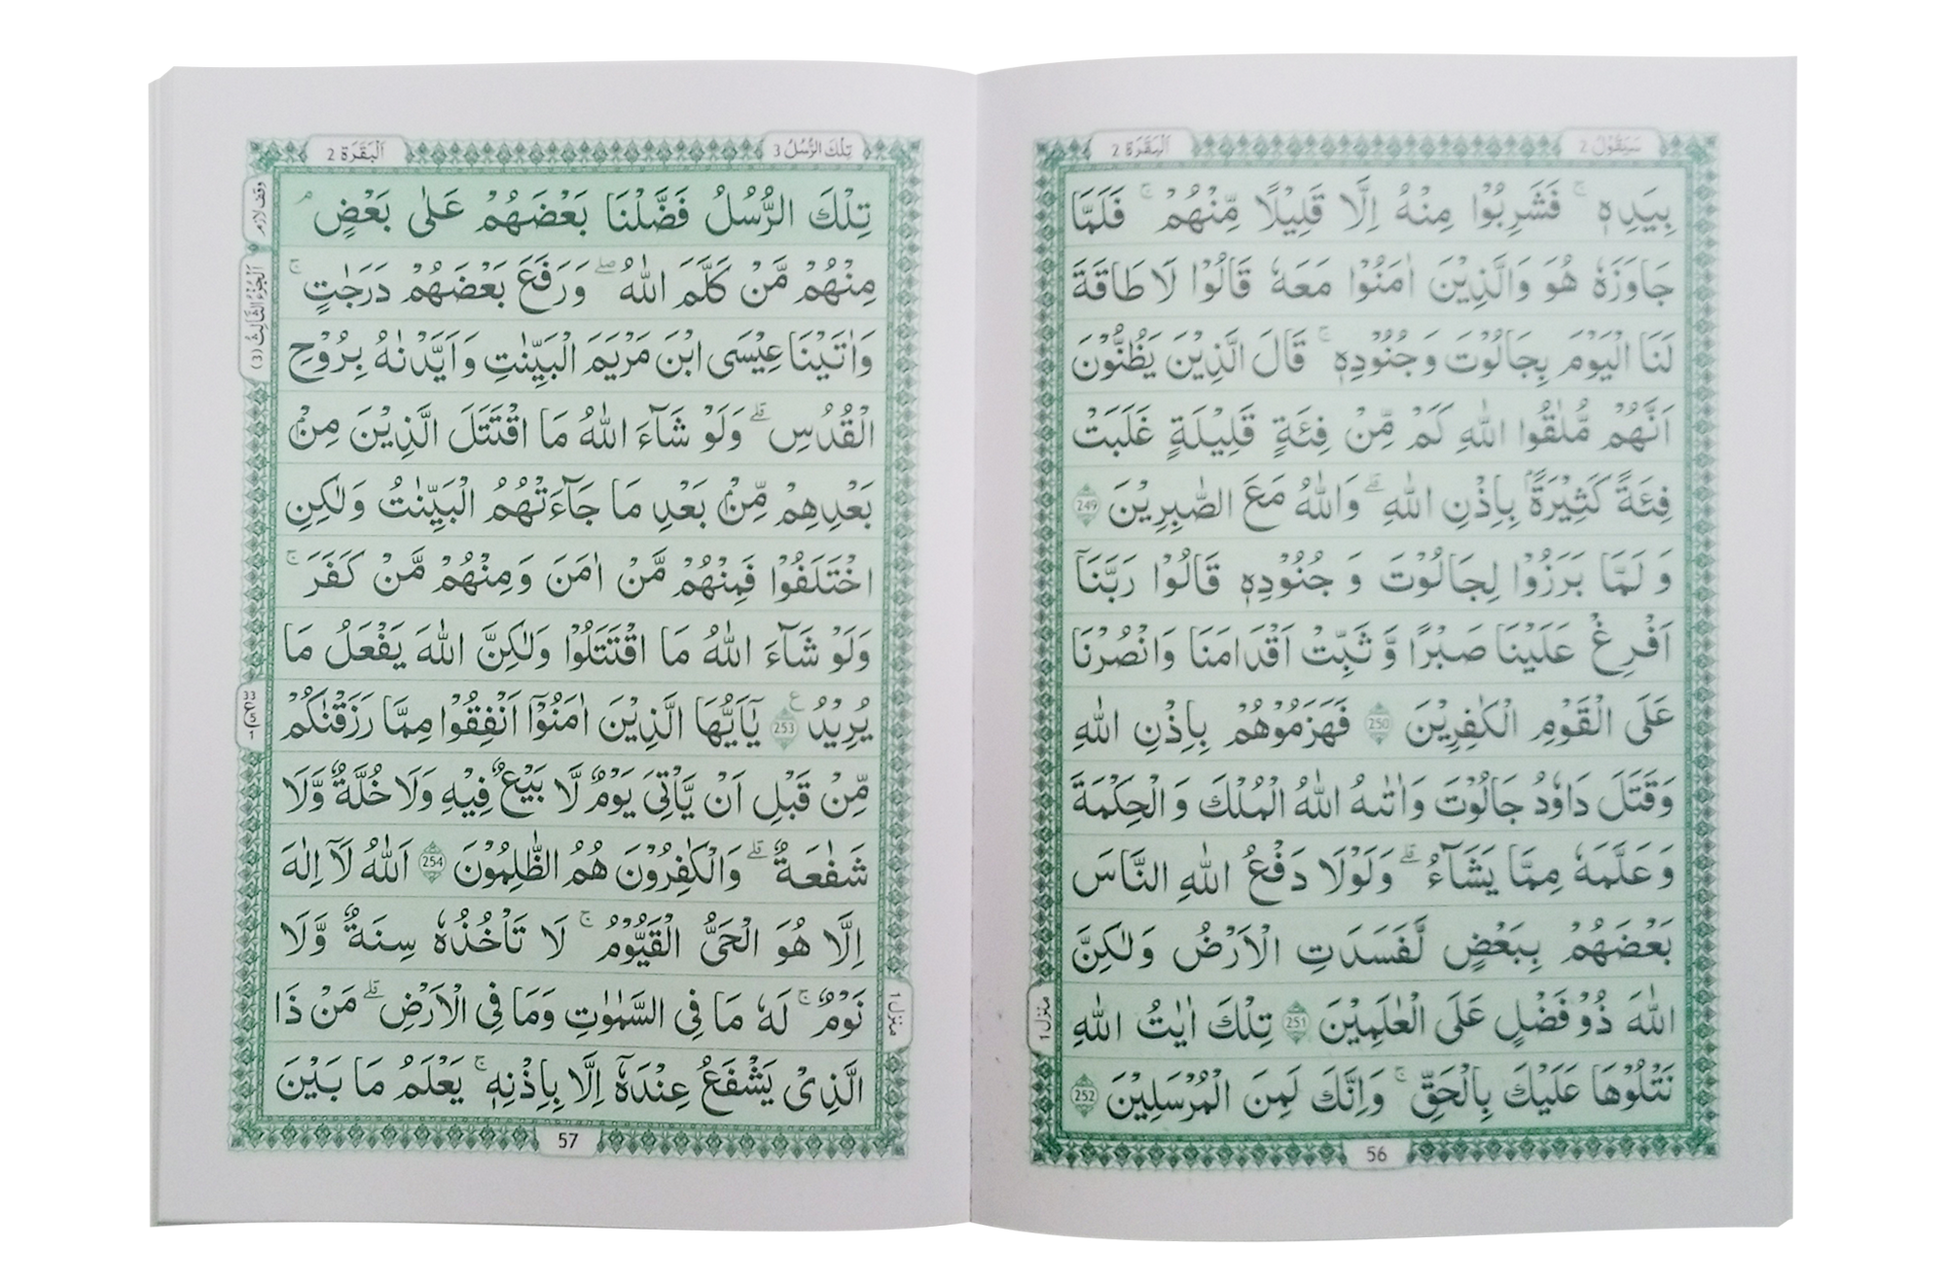 سَيَقُوْلُ 2
اَلْبَقَرَة 2
بِيَدِهٖ ۚ فَشَرِبُوْا مِنْهُ اِلَّا قَلِيْلًا مِّنْهُمْ ۚ فَلَمَّا
جَاوَزَهٗ هُوَ وَالَّذِيْنَ اٰمَنُوْا مَعَهٗ قَالُوْا لَا طَاقَةَ
لَنَا الْيَوْمَ بِجَالُوْتَ وَجُنُوْدِهٖ ۚ قَالَ الَّذِيْنَ يَظُنُّوْنَ
اَنَّهُمْ مُّلٰقُوا اللّٰهِ كَمْ مِّنْ فِئَةٍ قَلِيْلَةٍ غَلَبَتْ
فِئَةً كَثِيْرَةًۢ بِاِذْنِ اللّٰهِ ۗ وَاللّٰهُ مَعَ الصّٰبِرِيْنَ 249
وَلَمَّا بَرَزُوْا لِجَالُوْتَ وَجُنُوْدِهٖ قَالُوْا رَبَّنَاۤ
اَفْرِغْ عَلَيْنَا صَبْرًا وَّثَبِّتْ اَقْدَامَنَا وَانْصُرْنَا
عَلَى الْقَوْمِ الْكٰفِرِيْنَ 250 فَهَزَمُوْهُمْ بِاِذْنِ اللّٰهِ
وَقَتَلَ دَاوٗدُ جَالُوْتَ وَاٰتٰىهُ اللّٰهُ الْمُلْكَ وَالْحِكْمَةَ
وَعَلَّمَهٗ مِمَّا يَشَآءُ ۗ وَلَوْلَا دَفْعُ اللّٰهِ النَّاسَ
بَعْضَهُمْ بِبَعْضٍ لَّفَسَدَتِ الْاَرْضُ وَلٰكِنَّ
اللّٰهَ ذُوْ فَضْلٍ عَلَى الْعٰلَمِيْنَ 251 تِلْكَ اٰيٰتُ اللّٰهِ
نَتْلُوْهَا عَلَيْكَ بِالْحَقِّ ۚ وَاِنَّكَ لَمِنَ الْمُرْسَلِيْنَ 252
منزل 1
56
تِلْكَ الرُّسُلُ 3
اَلْبَقَرَة 2
تِلْكَ الرُّسُلُ فَضَّلْنَا بَعْضَهُمْ عَلٰى بَعْضٍ ۘ
مِنْهُمْ مَّنْ كَلَّمَ اللّٰهُ ۖ وَرَفَعَ بَعْضَهُمْ دَرَجٰتٍ ۚ
وَاٰتَيْنَا عِيْسَى ابْنَ مَرْيَمَ الْبَيِّنٰتِ وَاَيَّدْنٰهُ بِرُوْحِ
الْقُدُسِ ۗ وَلَوْ شَآءَ اللّٰهُ مَا اقْتَتَلَ الَّذِيْنَ مِنْۢ
بَعْدِهِمْ مِّنْۢ بَعْدِ مَا جَآءَتْهُمُ الْبَيِّنٰتُ وَلٰكِنِ
اخْتَلَفُوْا فَمِنْهُمْ مَّنْ اٰمَنَ وَمِنْهُمْ مَّنْ كَفَرَ ۚ
وَلَوْ شَآءَ اللّٰهُ مَا اقْتَتَلُوْا وَلٰكِنَّ اللّٰهَ يَفْعَلُ مَا
يُرِيْدُ ع 253 يٰۤاَيُّهَا الَّذِيْنَ اٰمَنُوْۤا اَنْفِقُوْا مِمَّا رَزَقْنٰكُمْ
مِّنْ قَبْلِ اَنْ يَّاْتِىَ يَوْمٌ لَّا بَيْعٌ فِيْهِ وَلَا خُلَّةٌ وَّلَا
شَفٰعَةٌ ۗ وَالْكٰفِرُوْنَ هُمُ الظّٰلِمُوْنَ 254 اَللّٰهُ لَاۤ اِلٰهَ
اِلَّا هُوَ الْحَىُّ الْقَيُّوْمُ ۚ لَا تَاْخُذُهٗ سِنَةٌ وَّلَا
نَوْمٌ ۚ لَهٗ مَا فِى السَّمٰوٰتِ وَمَا فِى الْاَرْضِ ۗ مَنْ ذَا
الَّذِىْ يَشْفَعُ عِنْدَهٗۤ اِلَّا بِاِذْنِهٖ ۚ يَعْلَمُ مَا بَيْنَ
وقف لازم
اَلْجُزْءُ الثَّالِثُ (3)
منزل 1
57